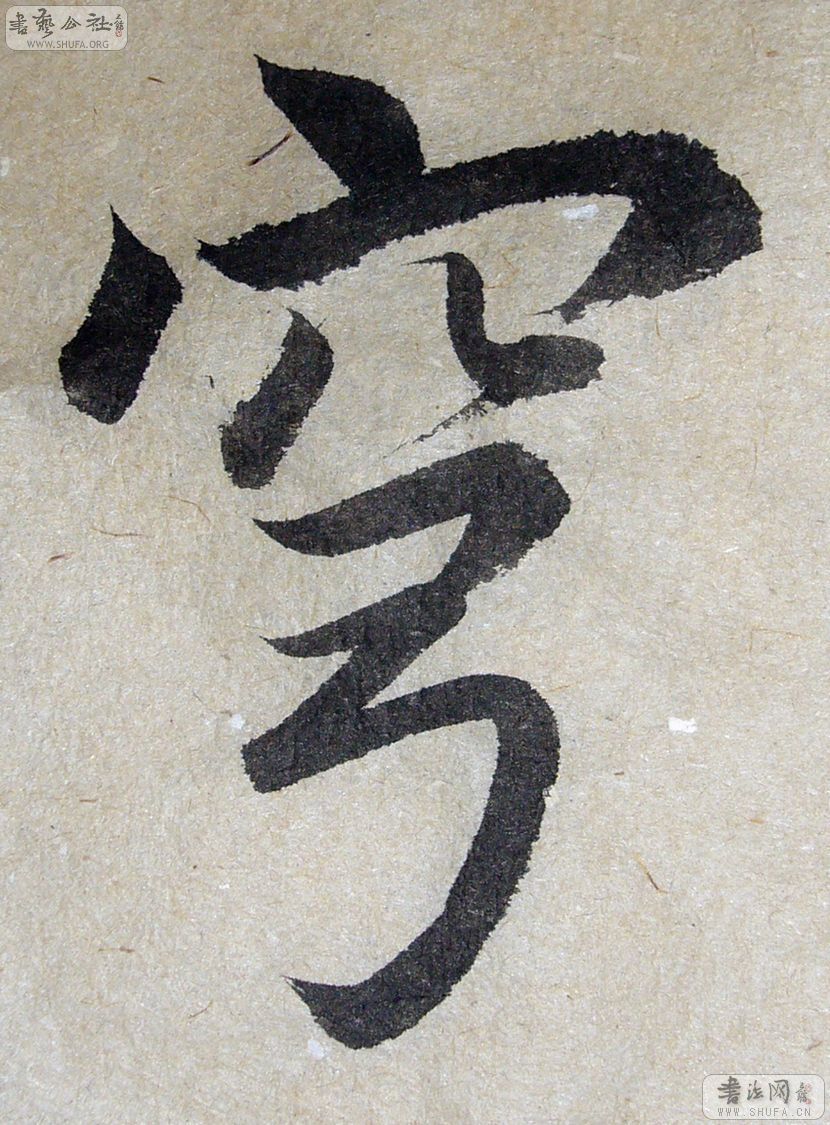 書藝公社
WWW.SHUFA.ORG
穹
書法网
WWW.SHUFA.CN